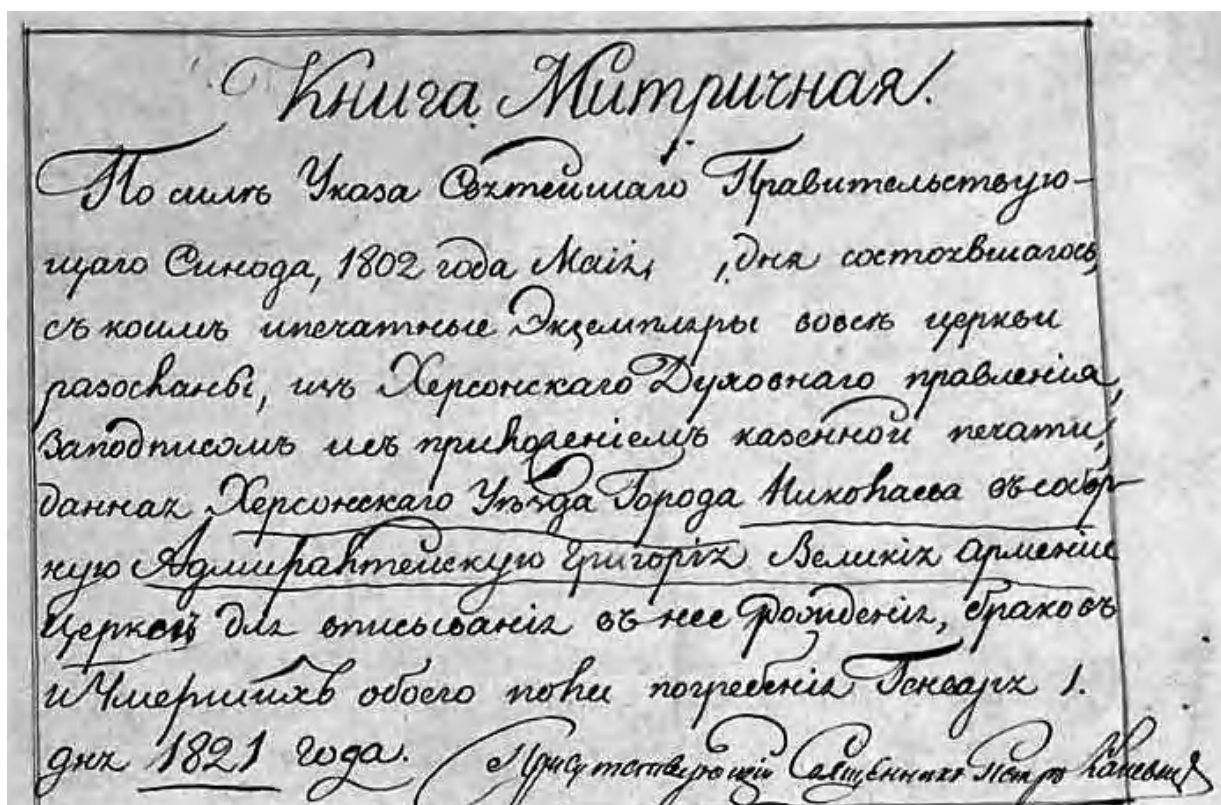 Книга Митричная.
По силѣ Указа Святейшаго Правительствую-
щаго Синода, 1802 года Маія, дня состоявшагося,
съ коимъ ипечатные Экземпляры вовсѣ церкви
разосланы, изъ Херсонскаго Духовнаго правленія,
Заподписомъ исъ приложеніемъ казенной печати,
данная Херсонскаго Уѣзда Города Николаева въсобор-
ную Адмиралтейскую Григорія Великія Арменіи
Церковь для вписыванія въ нее Рожденія, браковъ
и Умершихъ обоего пола погребенія Генваря 1.
дня 1821 года. Присутствующій Священникъ Петръ